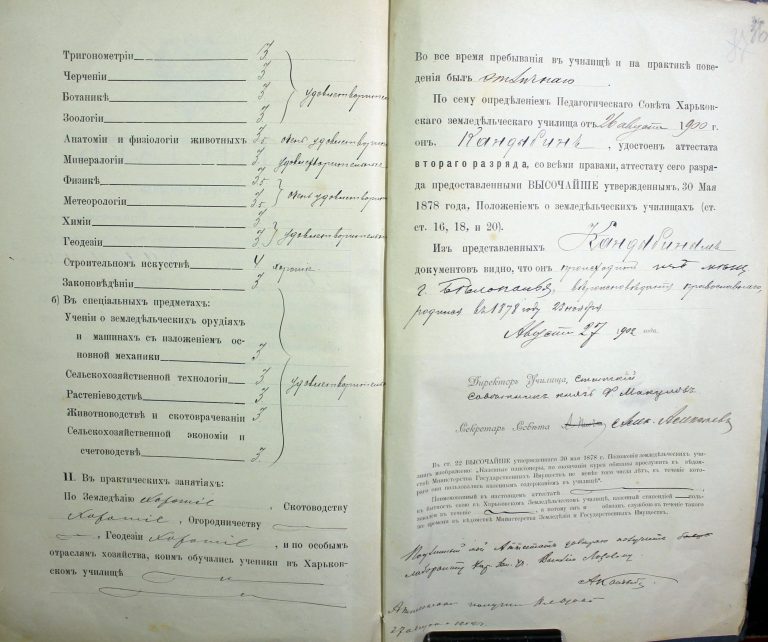 Тригонометріи 3
Черченіи 3
Ботаникѣ 3 удовлетворительно
Зоологіи 3
Анатоміи и физіологіи животныхъ 3
Минералогіи 3 удовлетворительно
Физикѣ 3
Метеорологіи 3
Химіи 3
Геодезіи 3 удовлетворительно
Строительномъ искусствѣ 4 хорошо
Законовѣдѣніи 3
б) Въ спеціальныхъ предметахъ:
Ученіи о земледѣльческихъ орудіяхъ
и машинахъ съ изложеніемъ ос-
новной механики 3
Сельскохозяйственной технологіи 3 удовлетворительно
Растеніеводствѣ 3
Животноводствѣ и скотоврачеваніи 3
Сельскохозяйственной экономіи и
счетоводствѣ 3
II. Въ практическихъ занятіяхъ:
По Земледѣлію хорошіе, Скотоводству
хорошіе, Огородничеству
, Геодезіи хорошіе, и по особымъ
отраслямъ хозяйства, коимъ обучались ученики въ Харьков-
скомъ училищѣ
Во все время пребыванія въ училищѣ и на практикѣ пове-
денія былъ отличнаго
По сему опредѣленіемъ Педагогическаго Совѣта Харьков-
скаго земледѣльческаго училища отъ 26 августа 1900 г.
онъ, Кандабинъ, удостоенъ аттестата
втораго разряда, со всѣми правами, аттестату сего разря-
да предоставленными ВЫСОЧАЙШЕ утвержденнымъ, 30 Мая
1878 года, Положеніемъ о земледѣльческихъ училищахъ (ст.
ст. 16, 18, и 20).
Изъ представленныхъ Кандабинымъ
документовъ видно, что онъ
г. Бѣлополья, вѣроисповѣданія православнаго,
родился въ 1878 году 23 ноября
Августа 27 1900 года.
Директоръ Училища, статскій
совѣтникъ князь
Секретарь Совѣта
Въ ст. 22 ВЫСОЧАЙШЕ утвержденнаго 30 мая 1878 г. Положенія земледѣльческихъ учи-
лищъ изображено: „Казенные пансіонеры, по окончаніи курса обязаны прослужить въ вѣдом-
ствѣ Министерства Государственныхъ Имуществъ не менѣе того числа лѣтъ, въ теченіе кото-
раго они пользовались казеннымъ содержаніемъ въ училищѣ".
Поименованный въ настоящемъ аттестатѣ
въ бытность свою въ Харьковскомъ Земледѣльческомъ училищѣ, казенной стипендіей поль-
зовался въ теченіе , а потому онъ обязанъ службою въ теченіе такого
же времени въ вѣдомствѣ Министерства Земледѣлія и Государственныхъ Имуществъ.
Аттестатъ
27 августа